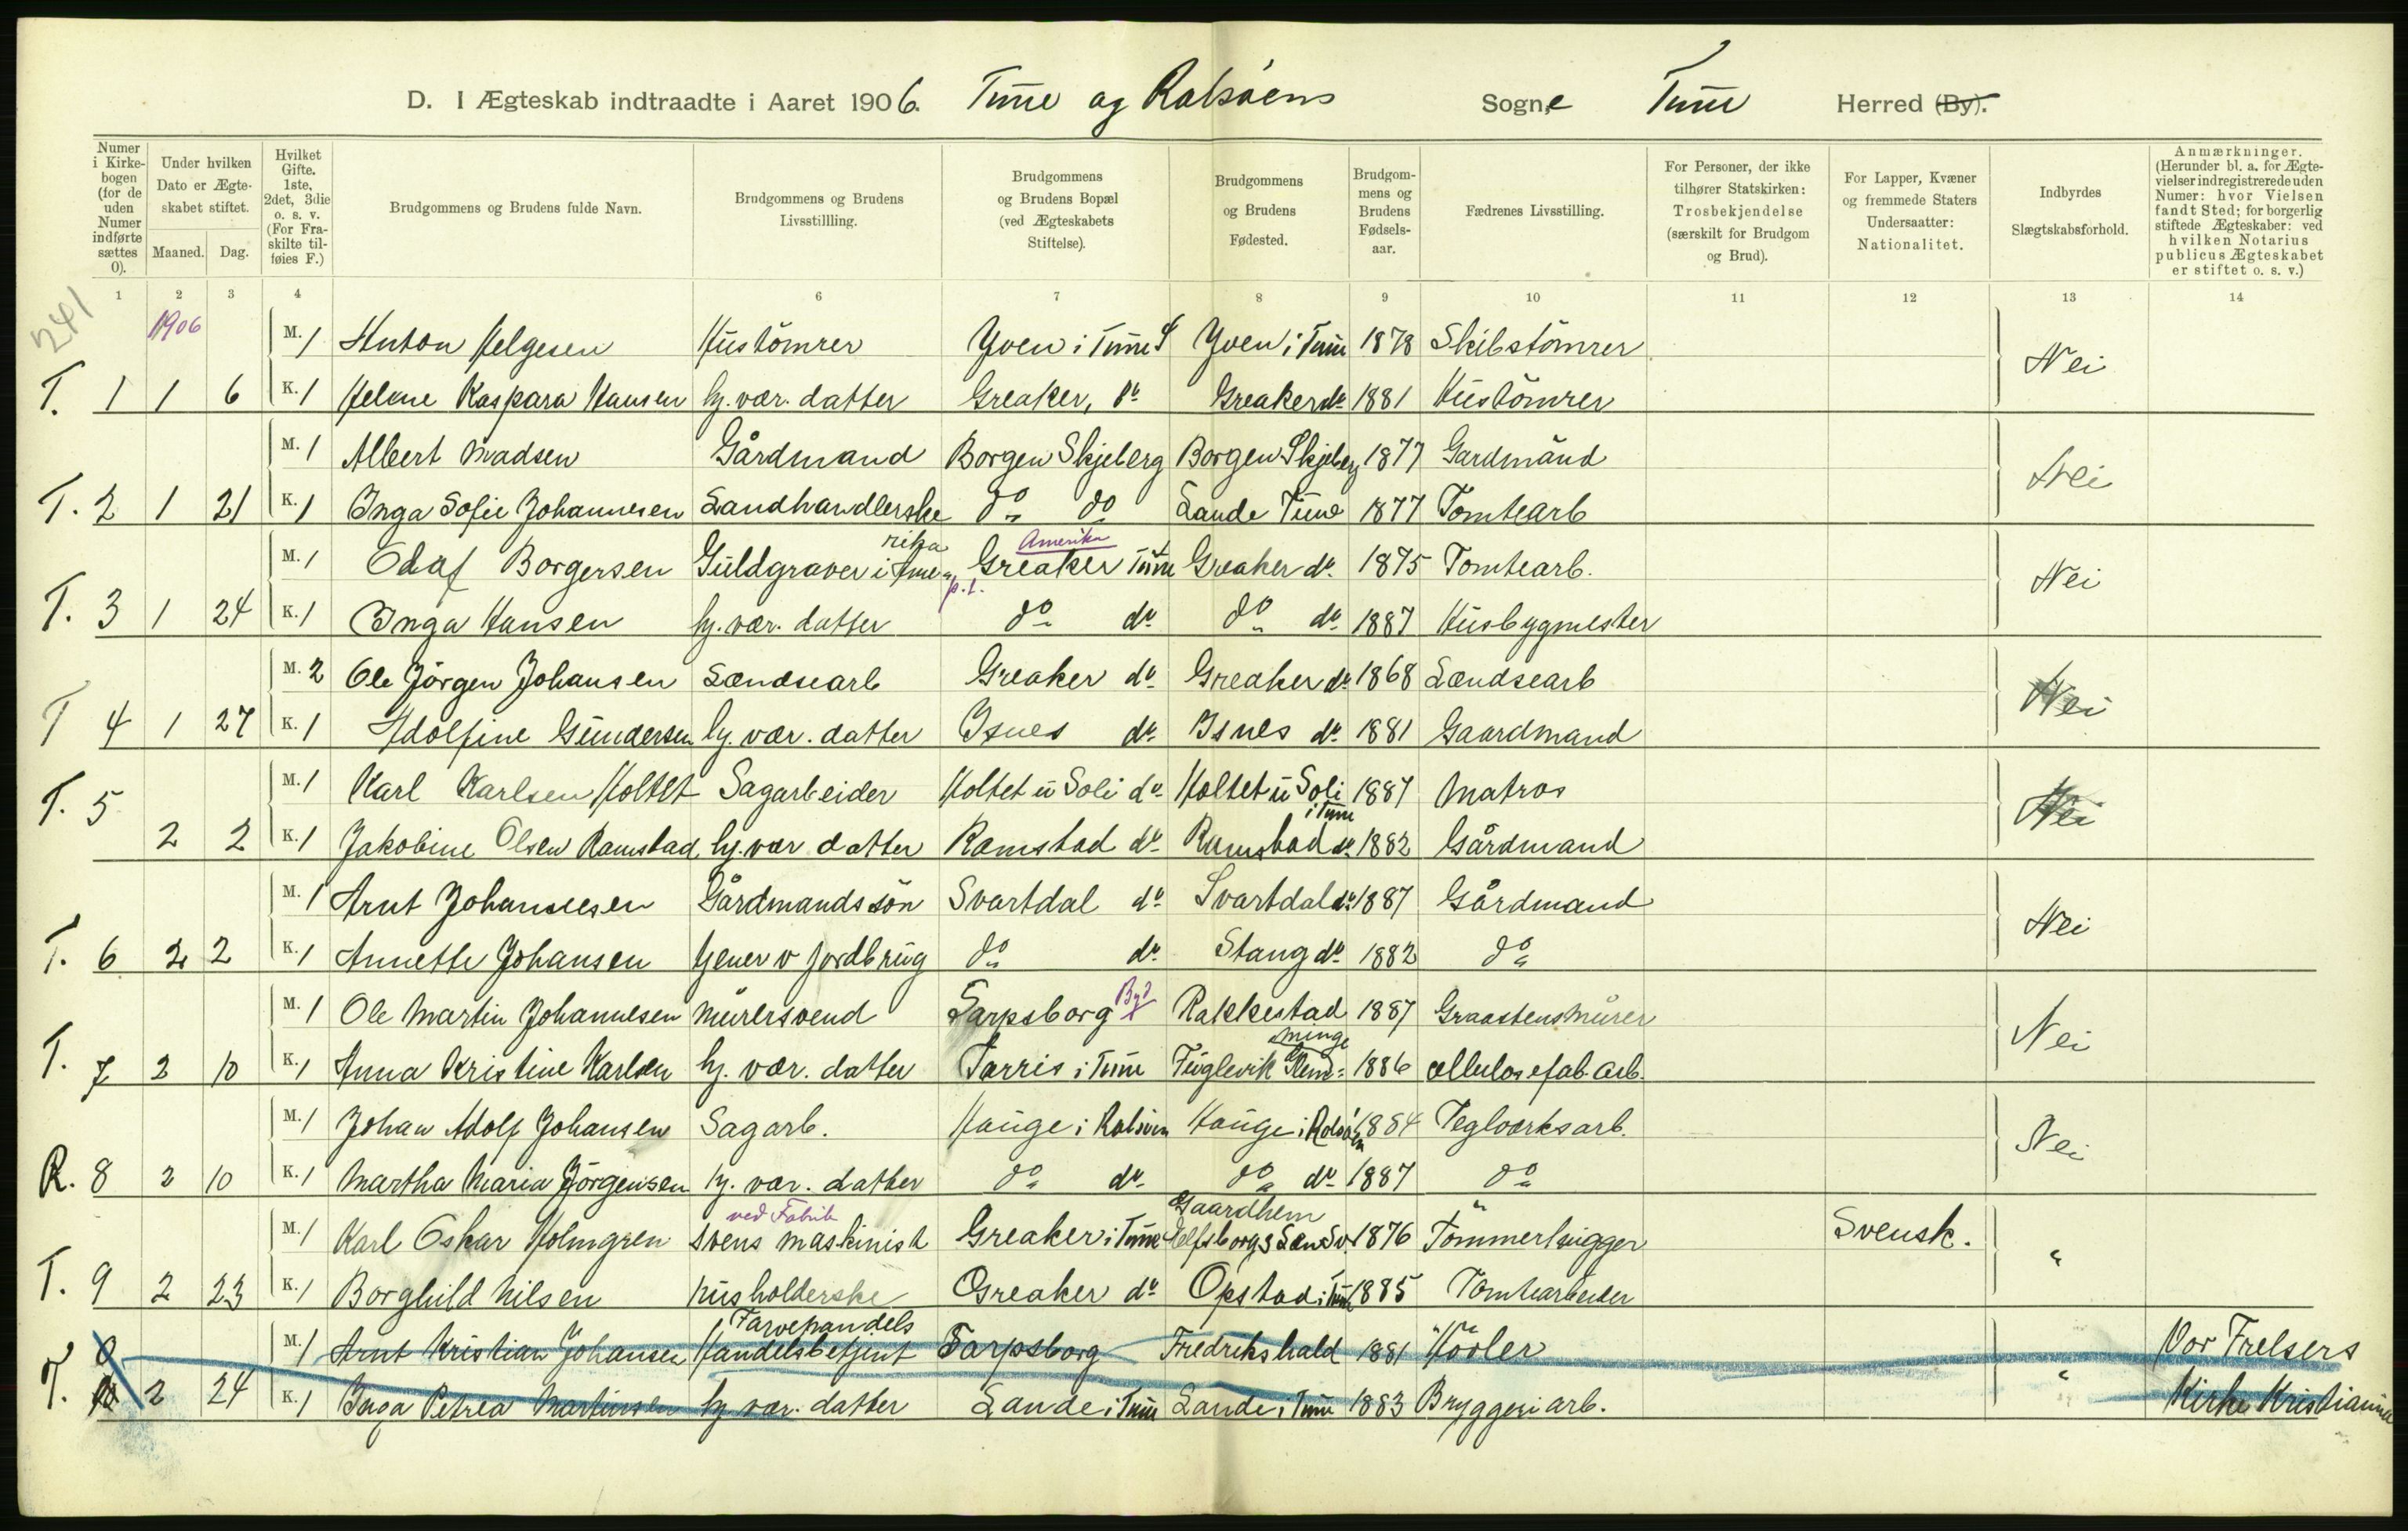 D. I Ægteskab indtraadte i Aaret 1906. Tune og Rolsøens Sogne Tune Herred (By).
Numer i Kirkebogen (for de uden Numer indførte sættes 0).
Under hvilken Dato er Ægteskabet stiftet. Maaned. Dag.
Hvilket Gifte. 1ste, 2det, 3die o. s. v. (For Fraskilte tilføies F.)
Brudgommens og Brudens fulde Navn.
Brudgommens og Brudens Livsstillling.
Brudgommens og Brudens Bopæl (ved Ægteskabets Stiftelse).
Brudgommens og Brudens Fødested.
Brudgommens og Brudens Fødselsaar.
Fædrenes Livsstilling.
For Personer, der ikke tilhører Statskirken: Trosbekjendelse (særskilt for Brudgom og Brud).
For Lapper, Kvæner og fremmede Staters Undersaatter: Nationalitet.
Indbyrdes Slægtskabsforhold.
Anmærkninger. (Herunder bl. a. for Ægtevielser indregistrerede uden Numer: hvor Vielsen fandt Sted; for borgerlig stiftede Ægteskaber: ved hvilken Notarius publicus Ægteskabet er stiftet o. s. v.)
1 2 3 4 6 7 8 9 10 11 12 13 14
241
1906
M. 1 Anton Helgesen Hustömrer Yven i Tune Yven i Tune 1878 Skibstömrer
Nei
T. 1 1 6 K. 1 Helene Kaspara Hansen hj. vær. datter Greaker, do Greaker do 1881 Hustömrer
M. 1 Albert Madsen Gårdmand Borgen Skjeberg Borgen Skjeberg 1877 Gardmand
Nei
T. 2 1 21 K. 1 Inga Sofie Johannesen Landhandlerske do do Lande Tune 1877 Tomtearb
rika Amerika
M. 1 Olaf Borgersen Guldgraver i Ame- Greaker Tune Greaker do 1875 Tomtearb.
p.t.
Nei
T. 3 1 24 K. 1 Inga Hansen hj. vær. datter do do do do 1887 Husbygmester
M. 2 Ole Jörgen Johansen Lændsearb Greaker do Greaker do 1868 Lændsearb
Nei
T 4 1 27 K. 1 Adolfine Gundersen hj. vær. datter Isnes do Isnes do 1881 Gaardmand
M. 1 Karl Karlsen Holtet Sagarbeider Holtet u Soli do Holtet u Soli i Tune 1887 Matros
T. 5 Nei
2 2 K. 1 Jakobine Olsen Ramstad hj. vær datter Ramstad do Ramstad do 1882 Gårdmand
M. 1 Arnt Johannesen Gårdmandssön Svartdal do Svartdal do 1887 Gårdmand
Nei
T. 6 2 2 K. 1 Annette Johansen tjener v jordbrug do do Stang do 1882 do
M. 1 Ole Martin Johannesen Murersvend Sarpsborg By? Rakkestad 1887 Graastensmurer
Nei
minge
T. 7 2 10 K. 1 Anna Kristine Karlsen hj. vær. datter Tarris i Tune Fuglevik Glem- 1886 cellulosefab. arb.
M. 1 Johan Adolf Johansen Sagarb. Hauge i Rolsöen Hauge i Rolsöen 1884 Teglværksarb.
Nei
R. 8 2 10 K. 1 Martha Maria Jörgensen hj. vær. datter do do do do 1887 do
ved Fabrik Gaardhem
M. 1 Karl Oskar Holmgren Svens maskinist Greaker i Tune Elfsborgs Læn Sv. 1876 Tömmerhugger Svensk.
"
T. 9 2 23 K. 1 Borghild Nilsen husholderske Greaker do Opstad i Tune 1885 Tomtearbeider
Farvehandels
0 M. 1 Arnt Kristian Johansen Handelsbetjent Sarpsborg Fredrikshald 1881 Vor Frelsers
"
T. 10 2 24 K. 1 Inga Petrea Martinsen hj vær. datter Lande i Tune Lande i Tune 1883 Bryggeri arb. Kirke Kristiania